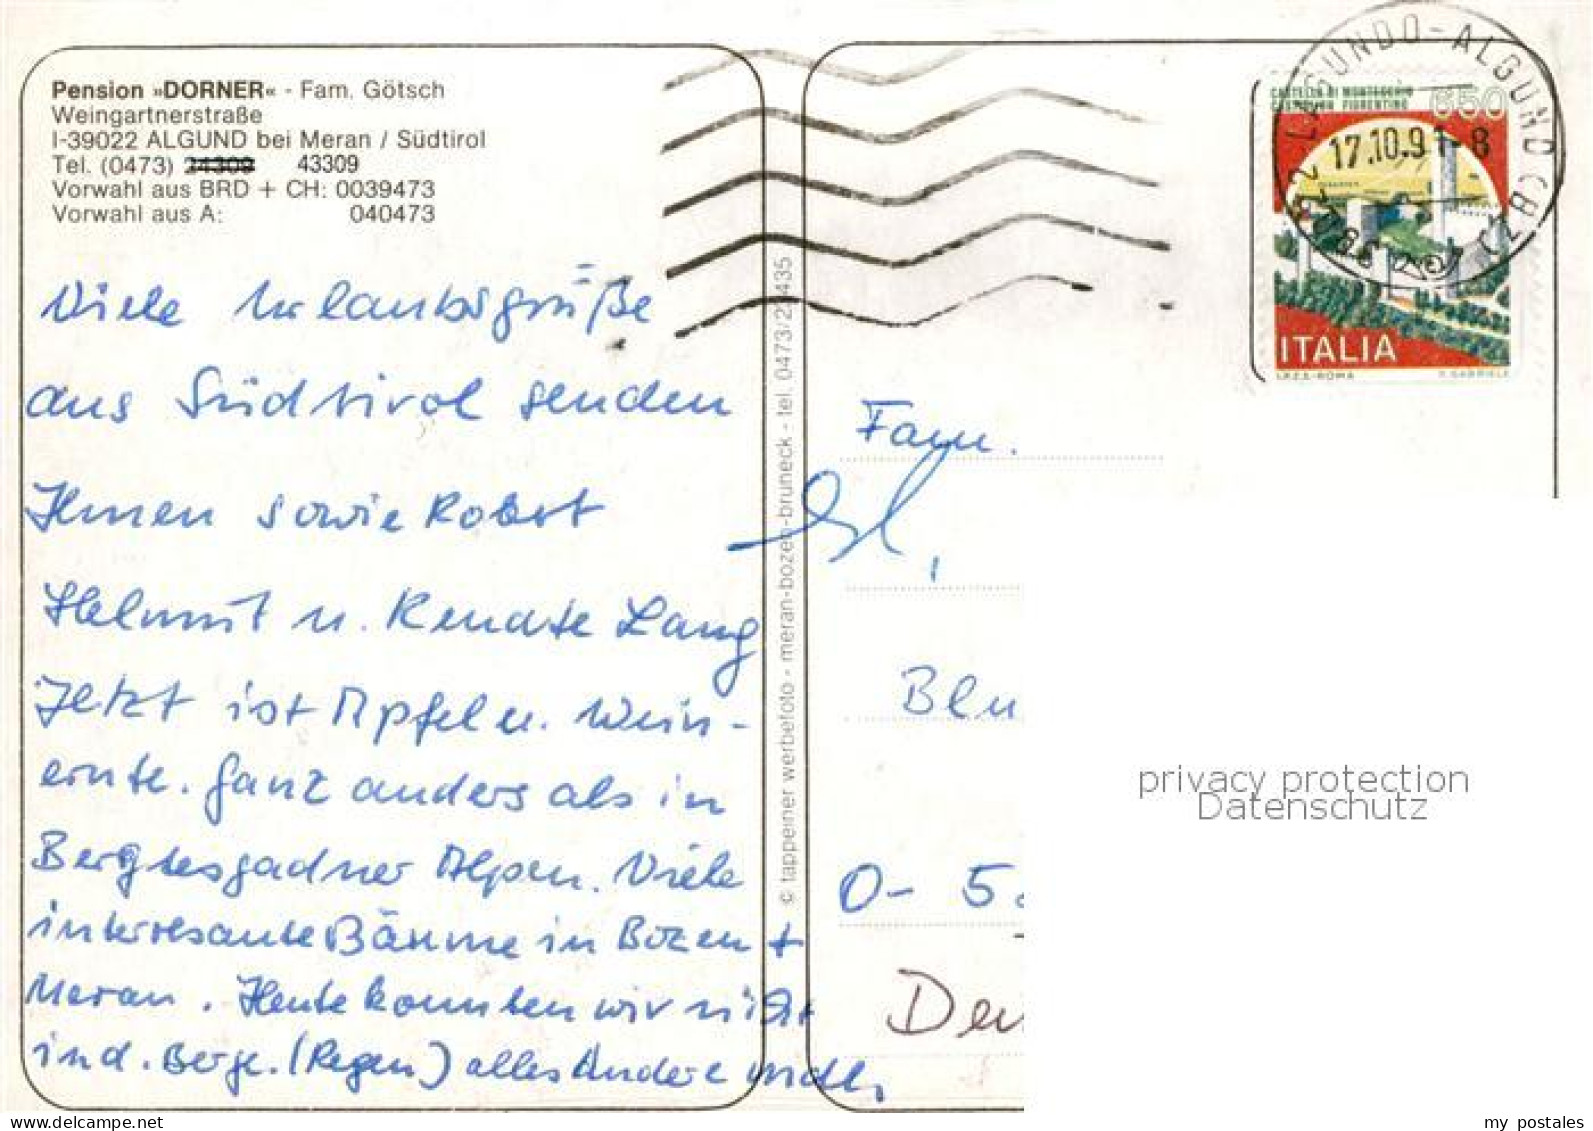 Pension »DORNER« - Fam. Götsch
Weingartnerstraße
I-39022 ALGUND bei Meran / Südtirol
Tel. (0473) 24309 43309
Vorwahl aus BRD + CH: 0039473
Vorwahl aus A: 040473
Viele Urlaubsgrüße
aus Südtirol senden
Ihnen sowie Robert
Helmut u. Renate Lang
Jetzt ist Apfel u. Wein-
ernte. Ganz anders als in
Bergtesgadner Alpen. Viele
interesante Bäume in Bozen +
Meran. Heute konnten wir nicht
in d. Berge. (Regen) alles Andere
© tappeiner werbefoto - meran-bozen-bruneck - tel. 0473/2 435
LAGUNDO-ALGUND (BZ)
17.10.91-8
CASTELLO DI MONTECCHIO
CASTIGLION FIORENTINO
650
ITALIA
I.P.Z.S.-ROMA
Fam.
Blu
O- 5
Deu
privacy protection
Datenschutz
my postales